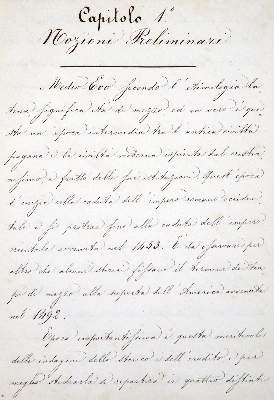 Capitolo 1º
Nozioni Preliminari
Medio Evo secondo l'etimologia la
tina significa età di mezzo ed in vero è que
sto un'epoca intermedia tra l'antica civiltà
pagana e la civiltà moderna ispirata dal cristia
nesimo e frutto delle sue istituzioni. Quest'epoca
sorge colla caduta dell'impero romano occiden
tale e si protrae fino alla caduta dell'impero
orientale avvenuta nel 1453. È da osservare per
altro che alcuni storici fissano il termine dei tem
pi di mezzo alla scoperta dell'America avvenuta
nel 1492.
Epoca importantissima è questa meritevole
delle indagini dello storico e dell'erudito e per
meglio studiarla si ripartirà in quattro distinti